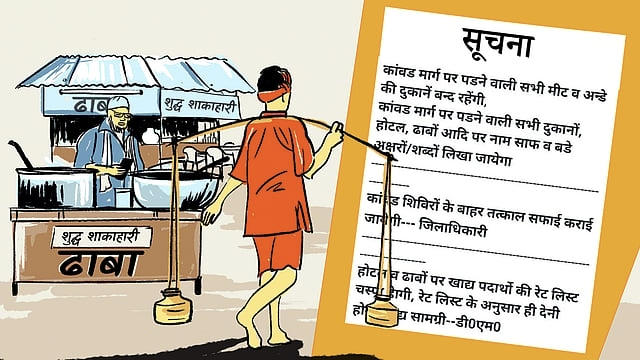 ढाबा
शुद्ध शाकाहारी
शुद्ध शाकाहारी
ढाबा
सूचना
कांवड मार्ग पर पडने वाली सभी मीट व अन्डे
की दुकानें बन्द रहेंगी,
कांवड मार्ग पर पडने वाली सभी दुकानों,
होटल, ढाबों आदि पर नाम साफ व बडे
अक्षरों/शब्दों लिखा जायेगा
शिविरों के बाहर तत्काल सफाई कराई
जिलाधिकारी
व ढाबों पर खाद्य पदार्थो की रेट लिस्ट
रेट लिस्ट के अनुसार ही देनी
सामग्री--डी0एम0